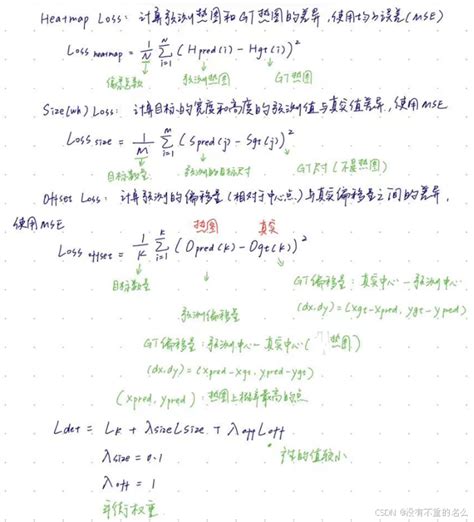 Heatmap Loss: 计算预测热图和GT热图的差异,使用均方误差(MSE)
Loss heatmap = 1/N Σ(i=1, N) (Hpred(i) - Hgt(i))²
像素点数 预测热图 GT热图
Size(wh) Loss: 计算目标的宽度和高度的预测值与真实值差异,使用MSE
Loss size = 1/M Σ(i=1, M) (Spred(j) - Sgt(j))²
目标数量 预测的目标尺寸 GT尺寸(不是热图)
Offset Loss: 计算预测的偏移量(相对于中心点)与真实偏移量之间的差异,
使用MSE 热图 真实
Loss offset = 1/K Σ(i=1, K) (Opred(k) - Ogt(k))²
目标数量 预测偏移量
GT偏移量:真实中心-预测中心
(dx,dy)=(xgt-xpred, ygt-ypred)
GT偏移量:预测中心-真实中心(热图)
(dx,dy)=(xpred-xgt, ypred-ygt)
(xpred, ypred):热图上概率最高的点
Ldet = Lk + λsize Lsize + λoff Loff
λsize = 0.1 产生的值较小
λoff = 1
平衡权重
CSDN @没有不重的名么